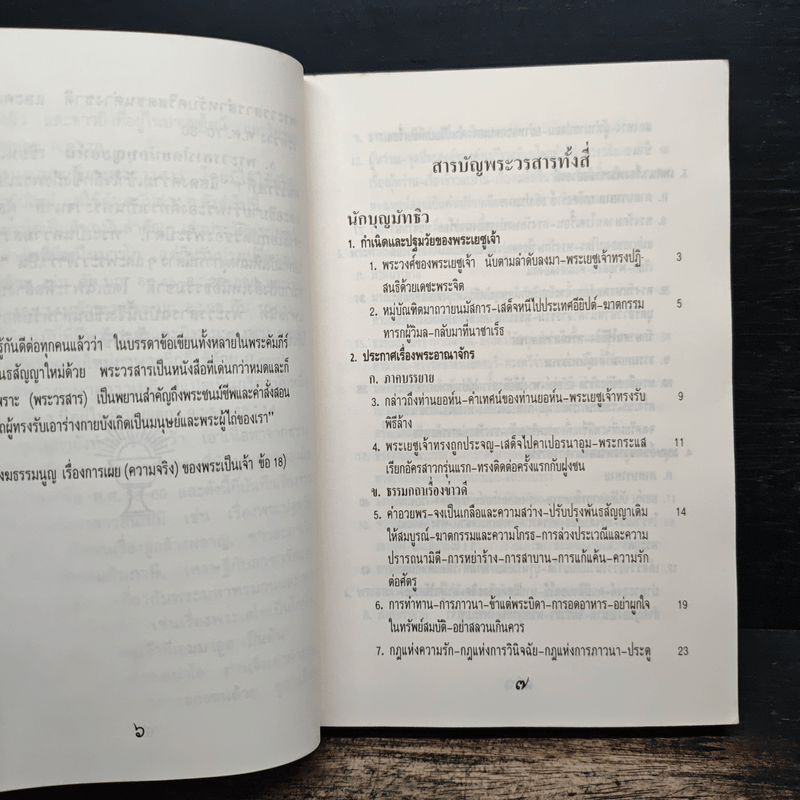 รู้กันดีต่อทุกคนแล้วว่า ในบรรดาข้อเขียนทั้งหลายในพระคัมภีร์
นธสัญญาใหม่ด้วย พระวรสารเป็นหนังสือที่เด่นกว่าหมดและก็
พราะ (พระวรสาร) เป็นพยานสำคัญถึงพระชนม์ชีพและคำสั่งสอน
ถผู้ทรงรับเอาร่างกายบังเกิดเป็นมนุษย์และพระผู้ไถ่ของเรา"
งฆธรรมนูญ เรื่องการเผย (ความจริง) ของพระเป็นเจ้า ข้อ 18)
๖
สารบัญพระวรสารทั้งสี่
นักบุญมัทธิว
1. กำเนิดและปฐมวัยของพระเยซูเจ้า
1. พระวงศ์ของพระเยซูเจ้า นับตามลำดับลงมา-พระเยซูเจ้าทรงปฏิ- 3
สนธิด้วยเดชะพระจิต
2. หมู่บัณฑิตมาถวายนมัสการ-เสด็จหนีไปประเทศอียิปต์-ฆาตกรรม 5
ทารกผู้วิมล-กลับมาที่นาซาเร็ธ
2. ประกาศเรื่องพระอาณาจักร
ก. ภาคบรรยาย
3. กล่าวถึงท่านยอห์น-คำเทศน์ของท่านยอห์น-พระเยซูเจ้าทรงรับ 9
พิธีล้าง
4. พระเยซูเจ้าทรงถูกประจญ-เสด็จไปคาเปอรนาอุม-พระกระแส 11
เรียกอัครสาวกรุ่นแรก-ทรงติดต่อครั้งแรกกับฝูงชน
ข. ธรรมกถาเรื่องข่าวดี
5. คำอวยพร-จงเป็นเกลือและความสว่าง-ปรับปรุงพันธสัญญาเดิม 14
ให้สมบูรณ์-ฆาตกรรมและความโกรธ-การล่วงประเวณีและความ
ปรารถนามิดี-การหย่าร้าง-การสาบาน-การแก้แค้น-ความรัก
ต่อศัตรู
6. การทำทาน-การภาวนา-ข้าแต่พระบิดา-การอดอาหาร-อย่าผูกใจ 19
ในทรัพย์สมบัติ-อย่าสลวนเกินควร
7. กฎแห่งความรัก-กฎแห่งการวินิจฉัย-กฎแห่งการภาวนา-ประตู 23
๗